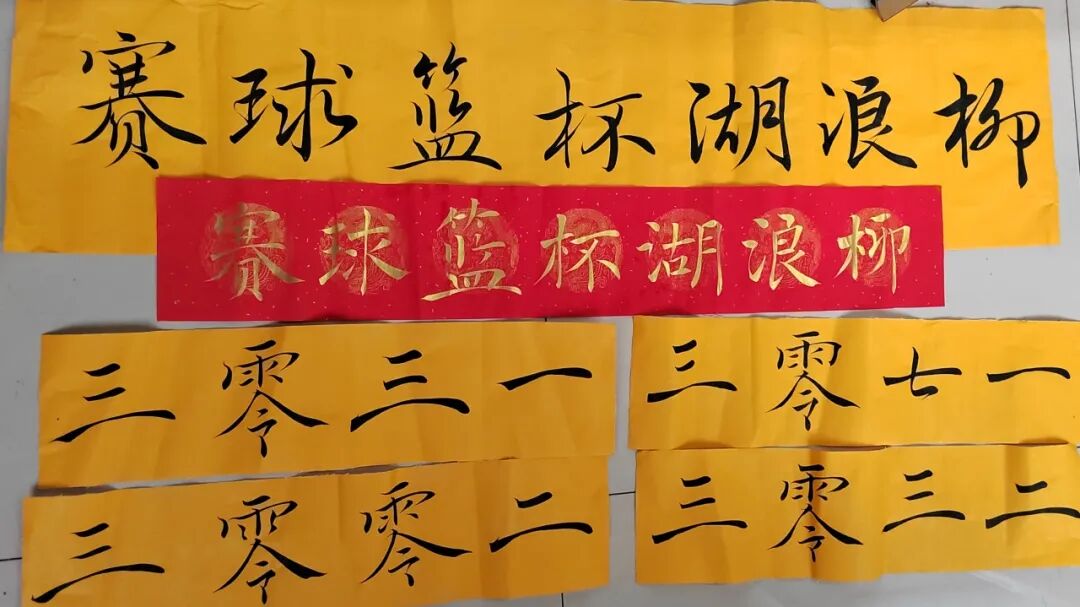 柳浪湖杯篮球赛
柳浪湖杯篮球赛
一三零三
一七零三
二零零三
二三零三